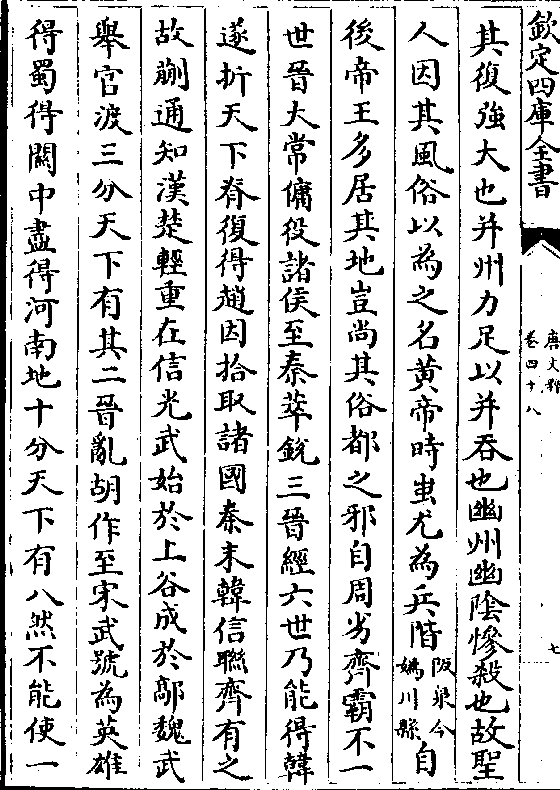 欽定四庫全書
唐文粹
卷四十八
七
其復強大也并州力足以并吞也幽州幽陰慘殺也故聖
人因其風俗以為之名黄帝時蚩尤為兵階阪泉今媯川縣自
後帝王多居其地豈尚其俗都之邪自周劣齊霸不一
世晉大常傭役諸侯至秦萃銳三晉經六世乃能得韓
遂折天下脊復得趙因拾取諸國秦末韓信聯齊有之
故蒯通知漢楚輕重在信光武始於上谷成於鄗魏武
舉官渡三分天下有其二晉亂胡作至宋武號為英雄
得蜀得關中盡得河南地十分天下有八然不能使一